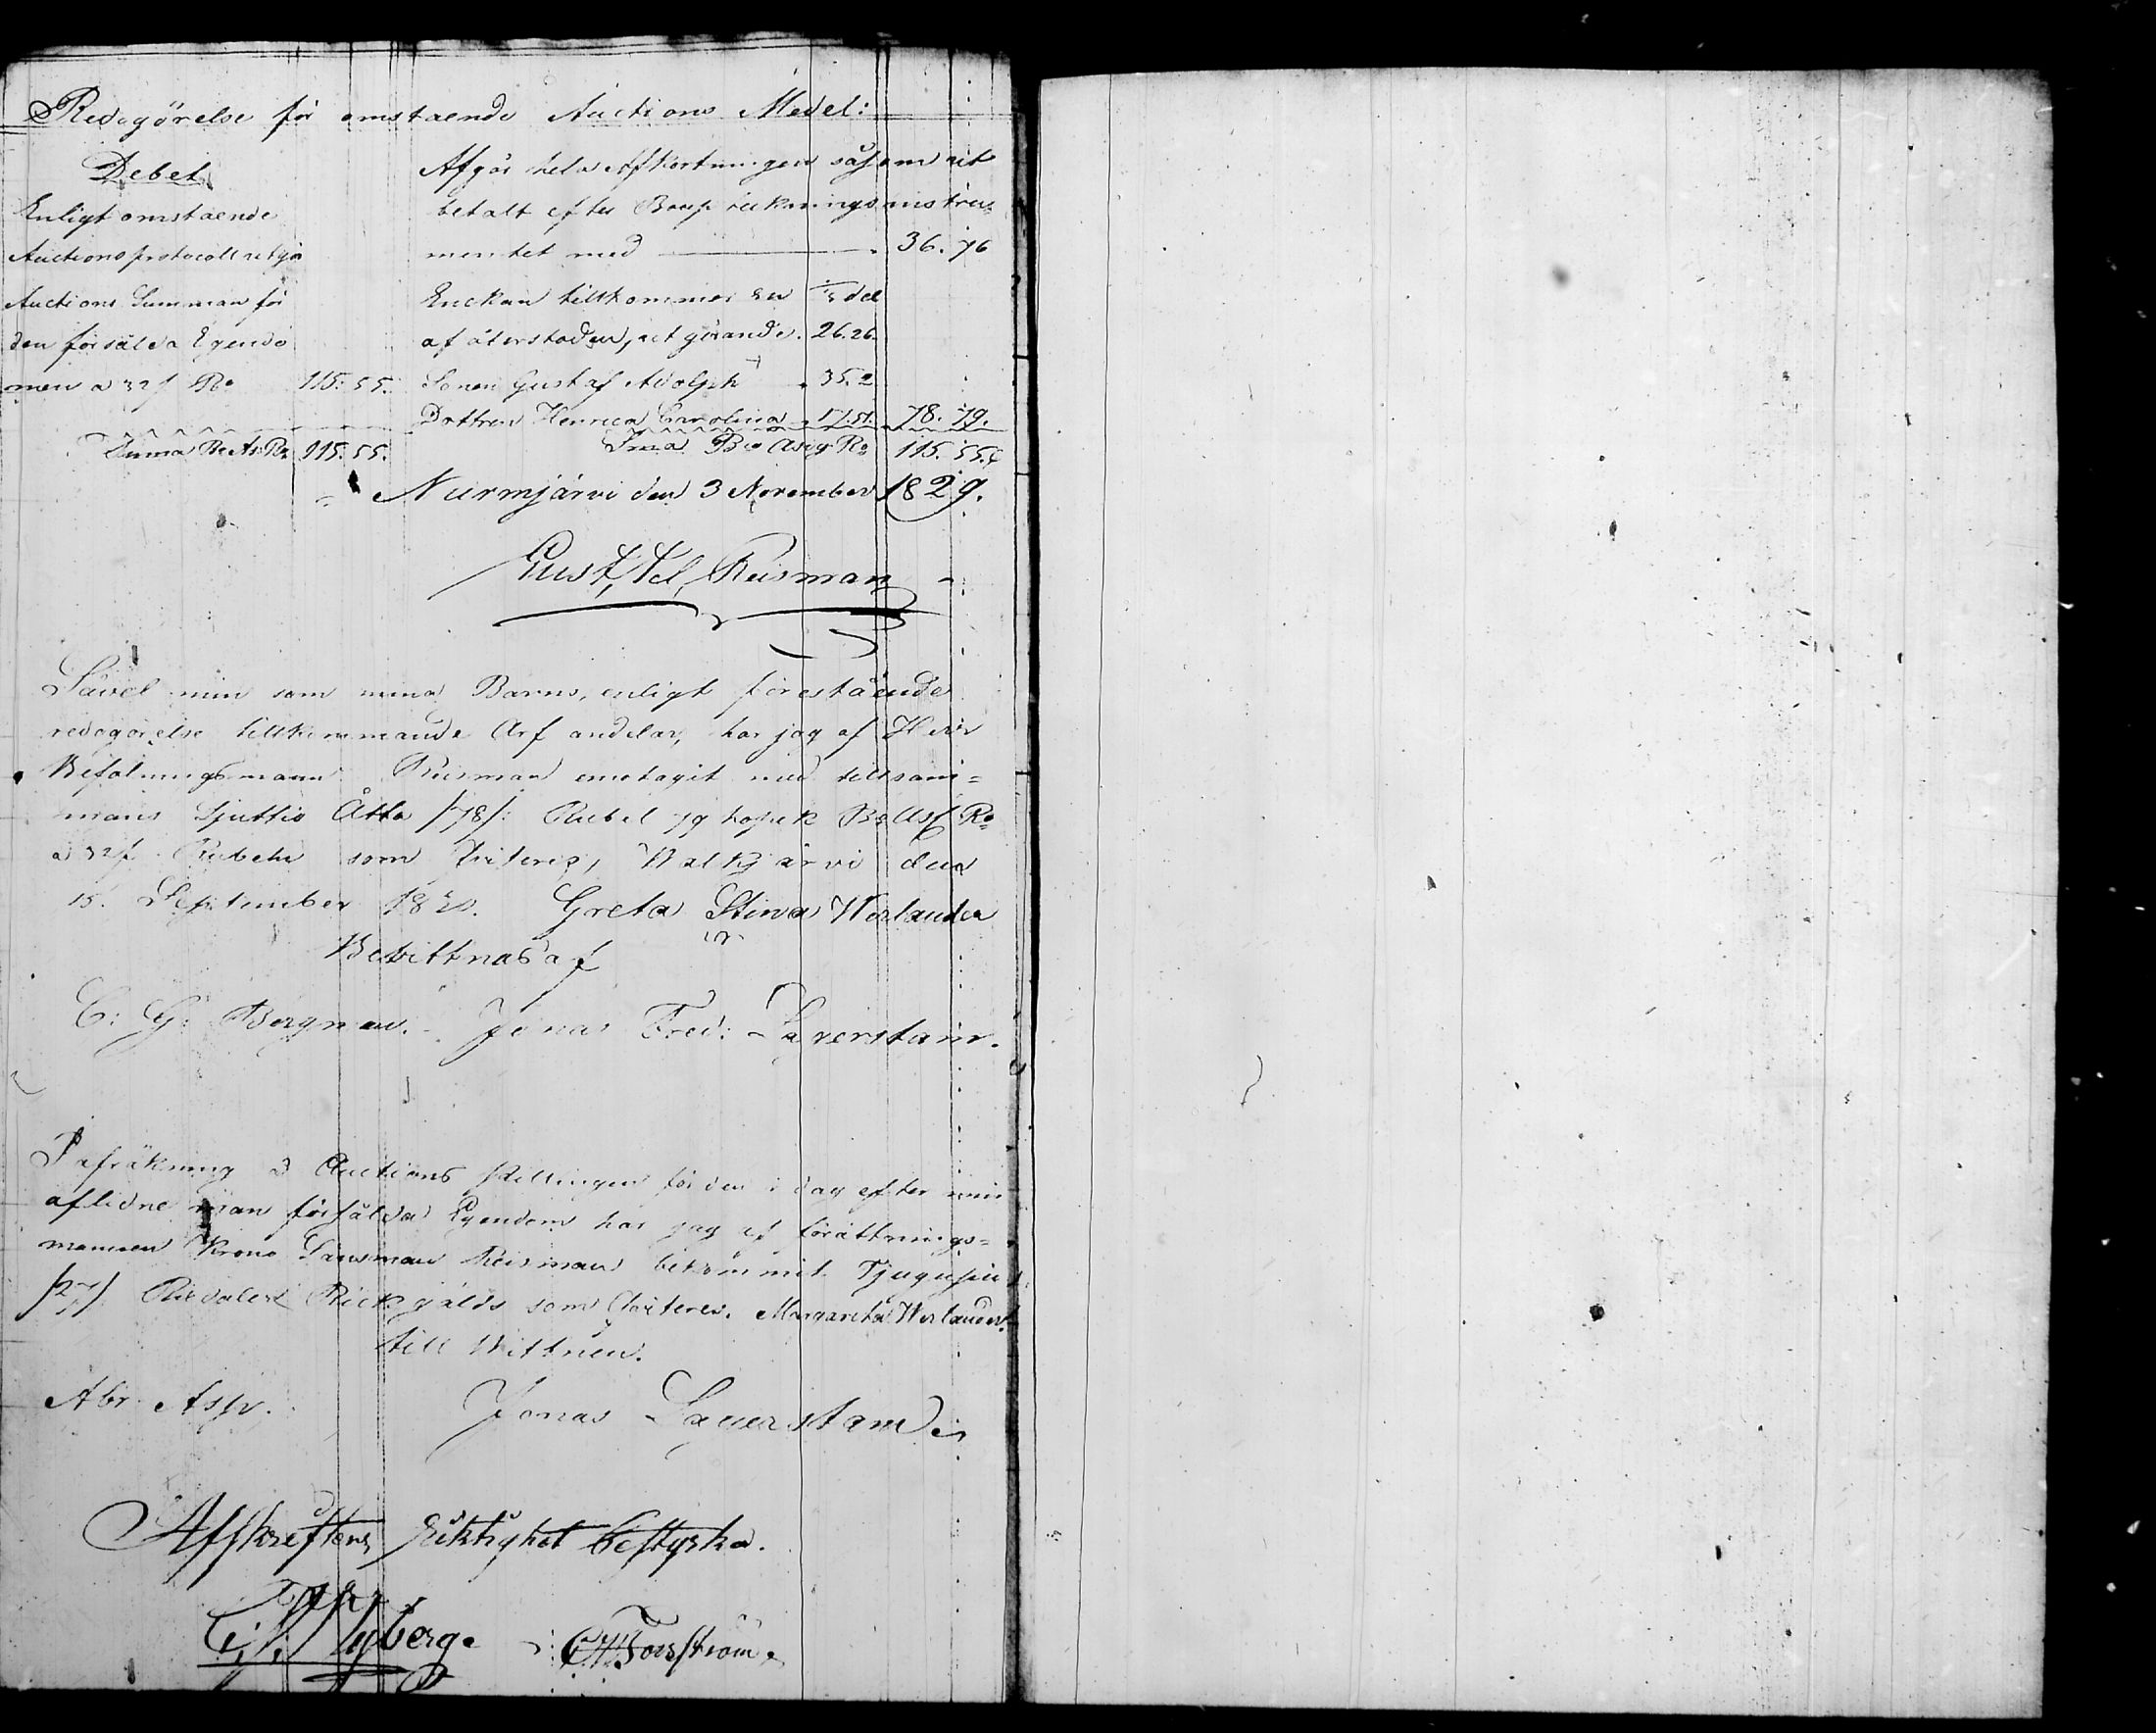 Redogörelse för omstaende Auctions Medel:
Debet
Enligt omstaende
Auctionsprotocoll utgör
Auctions Summan för
den försälda Egendo
men a 32 f Ro 115. 55.
Summa Bco As. Ro 115. 55.
Afgår hela Afkortningen såsom ut
betalt efter Boupteckningsinstru-
mentet med 36. 76
Enckan tillkommer en 1/3 del
af återstoden, utgörande. 26. 26.
Sonen Gustaf Adolph 35. 2
Dottren Henrica Carolina 17. 51. 78. 79.
Sma Bco Asig Ro 115. 55.
Nurmjärvi den 3 November 1829.
Gust. Ad. Reisman
Såvel min som mina Barns, enligt förestående
redogörelse tillkommande Arf andelar, har jag af Herr
Befalningsmann Reisman emotagit med tillsam=
mans Sjuttio Åtta /78/: Rubel 79 kopek Bco Asf Ro
a 32 f Rubeln som qviteras, Valkjärvi den
15. September Greta Stina Werlander
Bevittnas af
C: G: Bergman. Jonas Fred: Lagerstam.
I afräkning å Auctions skillingen för den i dag efter min
aflidne man försålda Egendom har jag af förättnings=
mannen Krono Länsman Reisman bekommit Tjugusju
/27/ Riksdaler Rickgälds som qviteras. Margareta Werlander.
till Wittnen.
Abr. Asp. Jonas Lagerstam
Afskriftens Riktighet bestyrka.
Nyberg. Forsström.